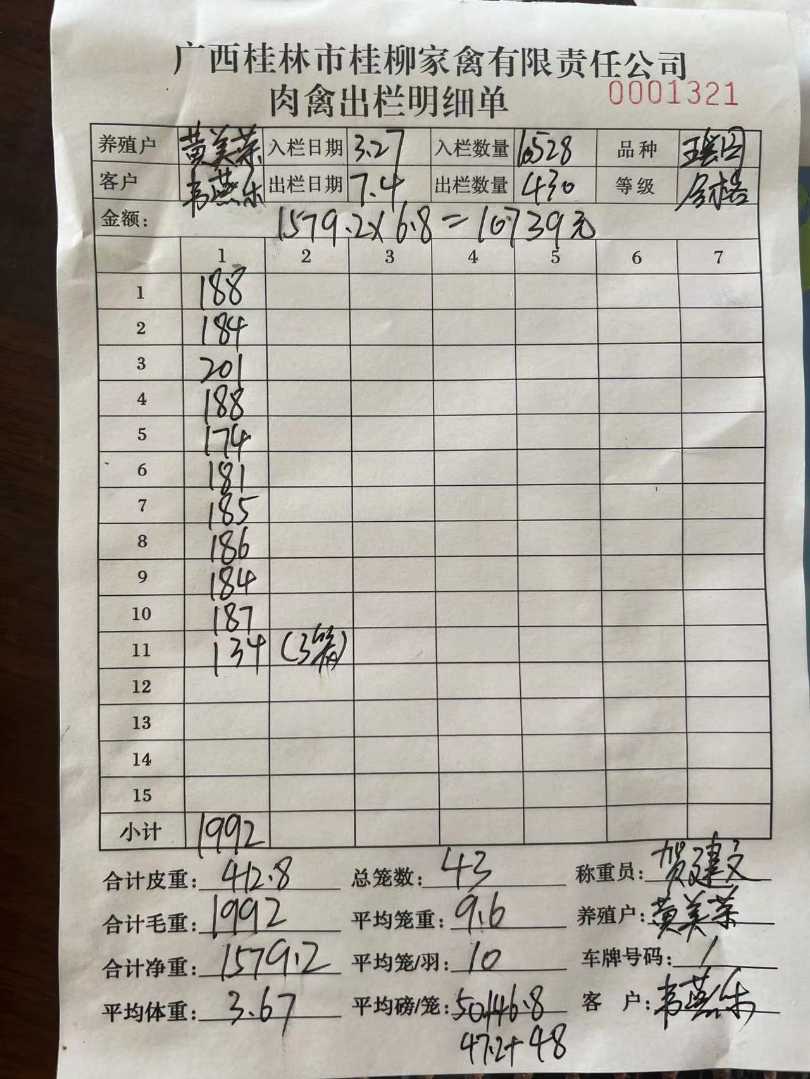 广西桂林市桂柳家禽有限责任公司
肉禽出栏明细单 0001321
养殖户 黄美荣 入栏日期 3.27 入栏数量 10528 品种
客户 韦燕乐 出栏日期 7.4 出栏数量 430 等级 合格
金额: 1579.2×6.8=10739元
1 2 3 4 5 6 7
1 188
2 184
3 201
4 188
5 174
6 181
7 185
8 186
9 184
10 187
11 134 (3笼)
12
13
14
15
小计 1992
合计皮重: 412.8 总笼数: 43 称重员: 贺建文
合计毛重: 1992 平均笼重: 9.6 养殖户: 黄美荣
合计净重: 1579.2 平均笼/羽: 10 车牌号码: /
平均体重: 3.67 平均磅/笼: 50+46.8 客户: 韦燕乐
47.2+48